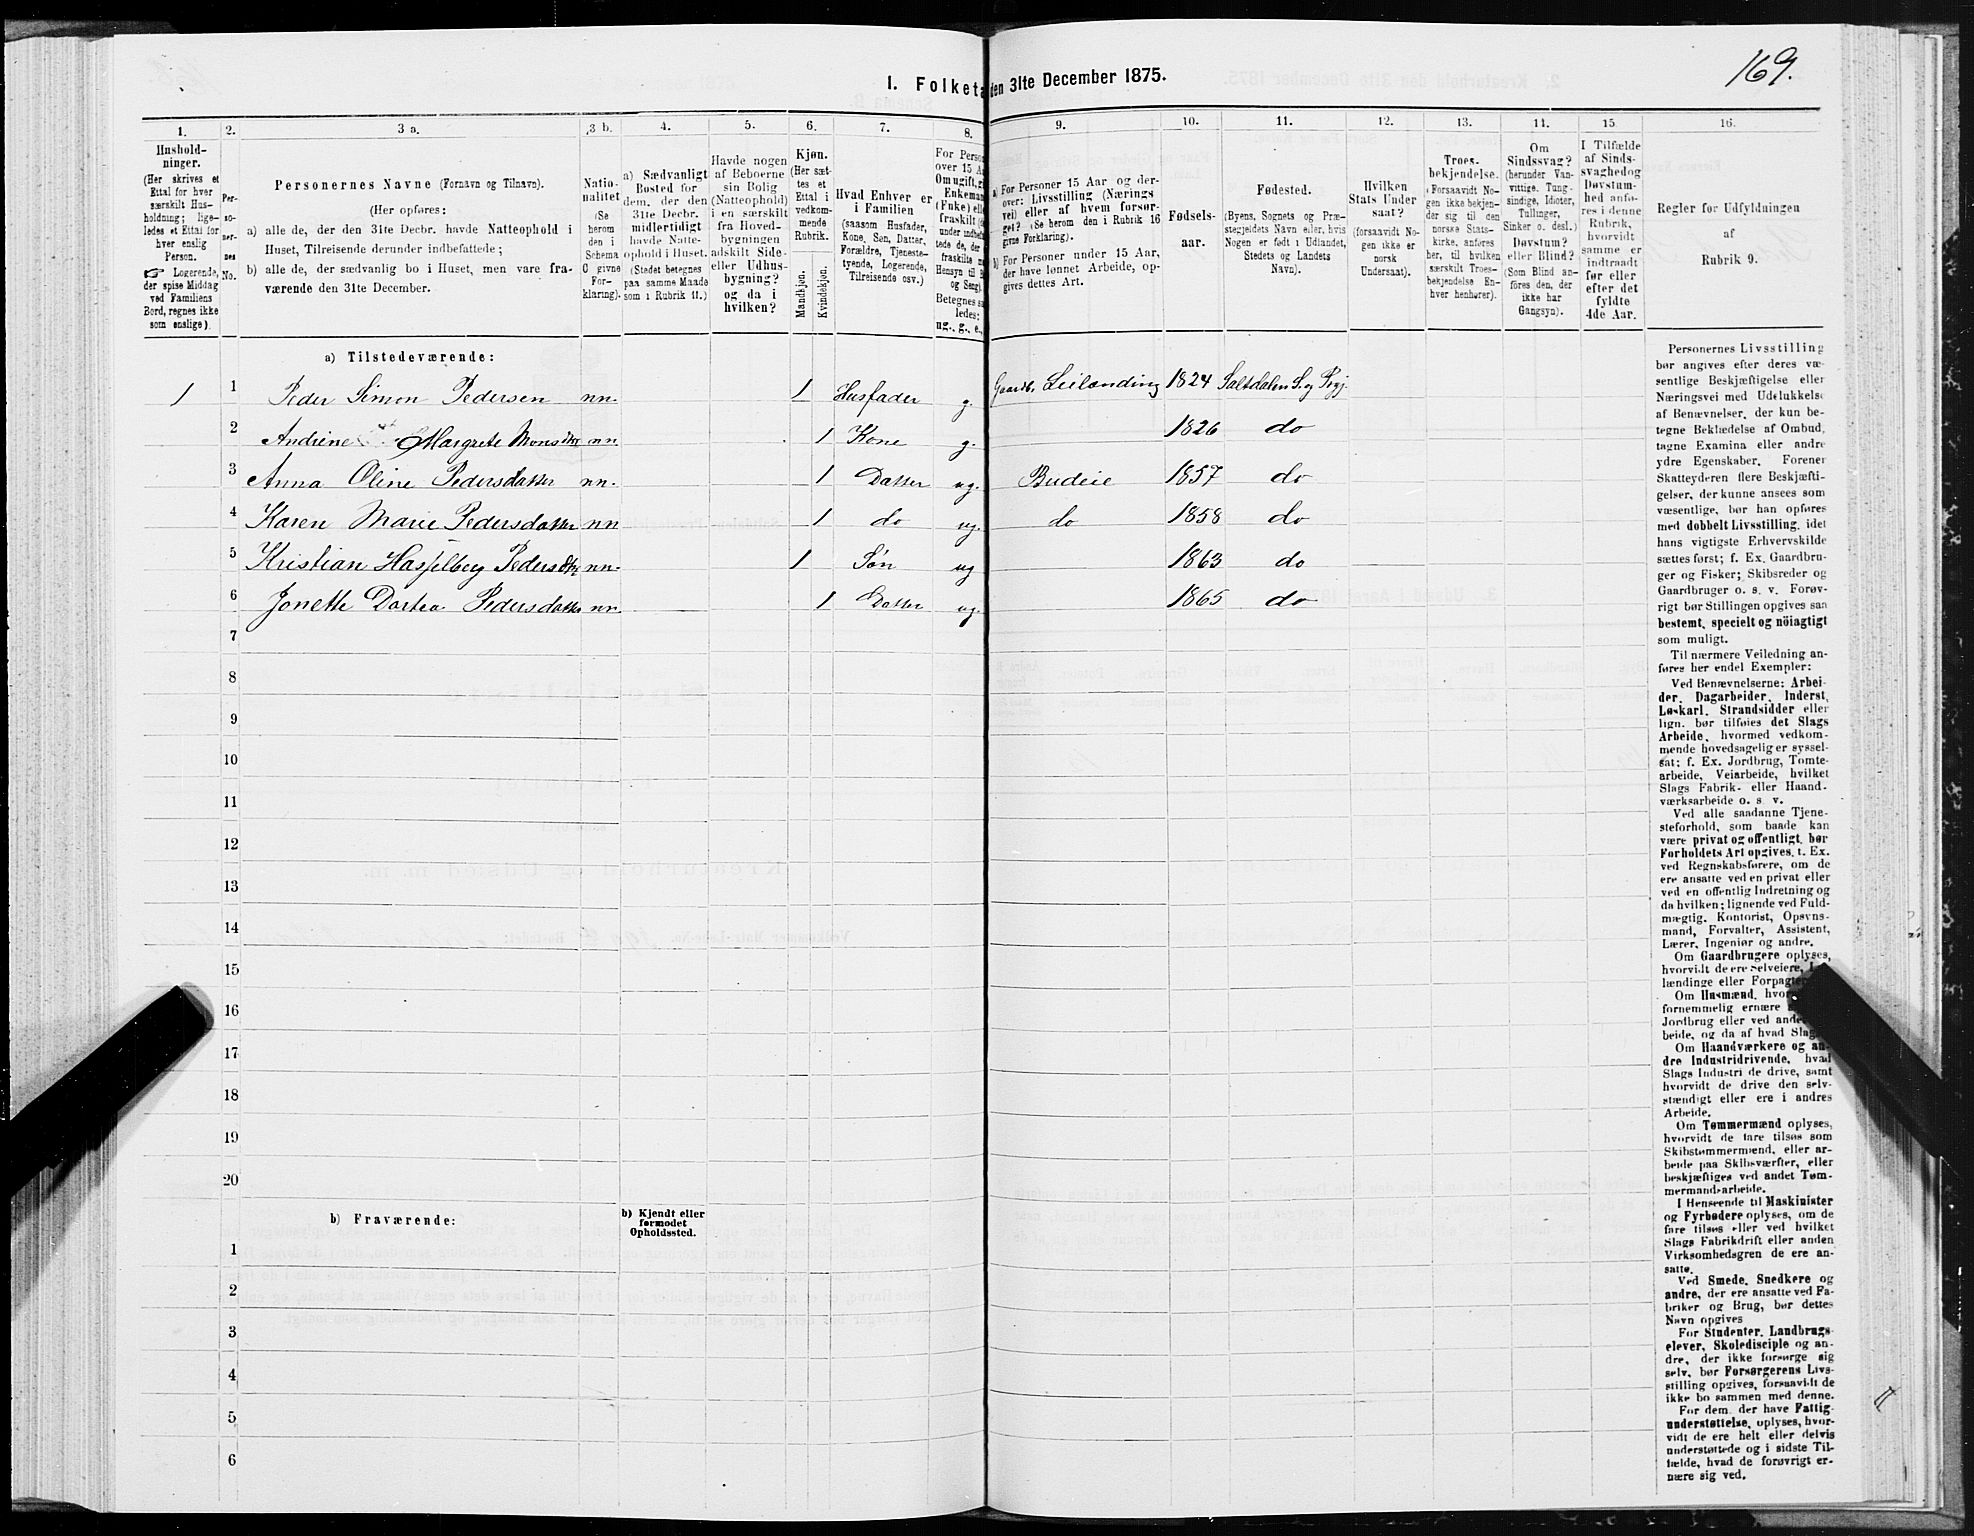 169.
I. Folketa den 31te December 1875.
1. 2. 3 a. 3 b. 4. 5. 6. 7. 8. 9. 10. 11. 12. 13. 14. 15. 16.
Hushold-
ninger.
(Her skrives et
Ettal for hver
særskilt Hus-
holdning; lige-
ledes et Ettal for
hver enslig
Person.
☞ Logerende,
der spise Middag
ved Familiens
Bord, regnes ikke
som enslige).
Per-
so-
ner-
nes
No.
Personernes Navne (Fornavn og Tilnavn).
(Her opføres:
a) alle de, der den 31te Decbr. havde Natteophold i
Huset, Tilreisende derunder indbefattede;
b) alle de, der sædvanlig bo i Huset, men vare fra-
værende den 31te December.
Natio-
nalitet
(Se
herom
den i
Schema
C givne
For-
klaring).
a) Sædvanligt
Bosted for
dem, der den
31te Decbr.
midlertidigt
havde Natte-
ophold i Huset.
(Stedet betegnes
paa samme Maade
som i Rubrik 11.)
Havde nogen
af Beboerne
sin Bolig
(Natteophold)
i en særskilt
fra Hoved-
bygningen
adskilt Side-
eller Udhus-
bygning?
og da i
hvilken?
Kjøn.
(Her sæt-
tes et
Ettal i
vedkom-
mende
Rubrik.
Mandkjøn.
Kvindekjøn.
Hvad Enhver er
i Familien
(saasom Husfader,
Kone, Søn, Datter,
Forældre, Tjeneste-
tyende, Logerende,
Tilreisende osv.)
For Perso
over 15 A
Om ugift, g
Enkeman
(Enke) elle
fraskilt (s
under indbef
tede de, der
fraskilte
Hensyn til B
og Seng).
Betegnes sa
ledes:
ug., g., e.,
a) For Personer 15 Aar og der-
over: Livsstilling (Nærings
vei) eller af hvem forsør-
get? (Se herom den i Rubrik 16
givne Forklaring).
b) For Personer under 15 Aar,
der have lønnet Arbeide, op-
gives dettes Art.
Fødsels-
aar.
Fødested.
(Byens, Sognets og Præ-
stegjeldets Navn eller, hvis
Nogen er født i Udlandet,
Stedets og Landets
Navn).
Hvilken
Stats Under
saat?
(forsaavidt No-
gen ikke er
norsk
Undersaat).
Troes-
bekjendelse.
(Forsaavidt No-
gen ikke bekjen-
der sig til den
norske Stats-
kirke, anføres
her, til hvilken
særskilt Troes-
bekjendelse En-
hver henhører).
Om
Sindssvag?
(herunder Van-
vittige, Tung-
sindige, Idioter,
Tullinger,
Sinker o. desl.)
Døvstum?
eller Blind?
(Som Blind an-
føres den, der
ikke har
Gangsyn).
I Tilfælde
af Sinds-
svaghed og
Døvstum-
hed anfø-
res i denne
Rubrik,
hvorvidt
samme er
indtraadt
før eller
efter det
fyldte
4de Aar.
Regler for Udfyldningen
af
Rubrik 9.
a) Tilstedeværende:
1 1 Peder Simon Pedersen nn. 1 Husfader g. Gaardb. Leilænding 1824 Saltdalen S. og Prgj.
2 Andrine Margrete Monsdtr nn. 1 Kone g. 1826 do
3 Anna Oline Pedersdatter nn. 1 Datter ug. Budeie 1857 do
4 Karen Marie Pedersdatter nn 1 do ug. do 1858 do
5 Kristian Pedersdtr nn. 1 Søn ug 1863 do
6 Jonette Dortea Pedersdatter nn. 1 Datter ug. 1865 do
7
8
9
10
11
12
13
14
15
16
17
18
19
20
b) Fraværende:
b) Kjendt eller
formodet
Opholdssted.
1
2
3
4
5
6
Personernes Livsstilling
bør angives efter deres væ-
sentlige Beskjæftigelse eller
Næringsvei med Udelukkelse
af Benævnelser, der kun be-
tegne Beklædelse af Ombud,
tagne Examina eller andre
ydre Egenskaber. Forener
Skatteyderen flere Beskjæfti-
gelser, der kunne ansees som
væsentlige, bør han opføres
med dobbelt Livsstilling, idet
hans vigtigste Erhvervskilde
sættes først; f. Ex. Gaardbru-
ger og Fisker; Skibsreder og
Gaardbruger o. s. v. Forøv-
rigt bør Stillingen opgives saa
bestemt, specielt og nöiagtigt
som muligt.
Til nærmere Veiledning an-
føres her endel Exempler:
Ved Benævnelserne: Arbei-
der, Dagarbeider, Inderst,
Løskarl, Strandsidder eller
lign. bør tilføies det Slags
Arbeide, hvormed vedkom-
mende hovedsagelig er syssel-
sat; f. Ex. Jordbrug, Tomte-
arbeide, Veiarbeide, hvilket
Slags Fabrik- eller Haand-
værksarbeide o. s. v.
Ved alle saadanne Tjene-
steforhold, som baade kan
være privat og offentligt, bør
Forholdets Art opgives, t. Ex.
ved Regnskabsførere, om de
ere ansatte ved en privat eller
ved en offentlig Indretning og
da hvilken; lignende ved Fuld-
mægtig, Kontorist, Opsyns-
mand, Forvalter, Assistent,
Lærer, Ingeniør og andre.
Om Gaardbrugere oplyses,
hvorvidt de ere Selveiere, L
lændinge eller Forpagte
Om Husmænd, hvor
fornemmelig ernære
Jordbrug eller ved ande
beide, og da af hvad Slag
Om Haandværkere og an-
dre Industridrivende, hvad
Slags Industri de drive, samt
hvorvidt de drive den selv-
stændigt eller ere i andres
Arbeide.
Om Tømmermænd oplyses,
hvorvidt de fare tilsøs som
Skibstømmermænd, eller ar-
beide paa Skibsværfter, eller
beskjæftiges ved andet Tøm-
mermandsarbeide.
I Henseende til Maskinister
og Fyrbødere oplyses, om de
fare tilsøs eller ved hvilket
Slags Fabrikdrift eller anden
Virksomhedsgren de ere an-
satte.
Ved Smede, Snedkere og
andre, der ere ansatte ved Fa-
briker og Brug, bør dettes
Navn opgives
For Studenter, Landbrugs-
elever, Skoledisciple og an-
dre, der ikke forsørge sig
selv, bør Forsørgerens Livs-
stilling opgives, forsaavidt de
ikke bo sammen med denne.
For dem, der have Fattig-
understøttelse, oplyses, hvor-
vidt de ere helt eller delvis
understøttede og i sidste Til-
fælde, hvad de forøvrigt er-
nære sig ved.